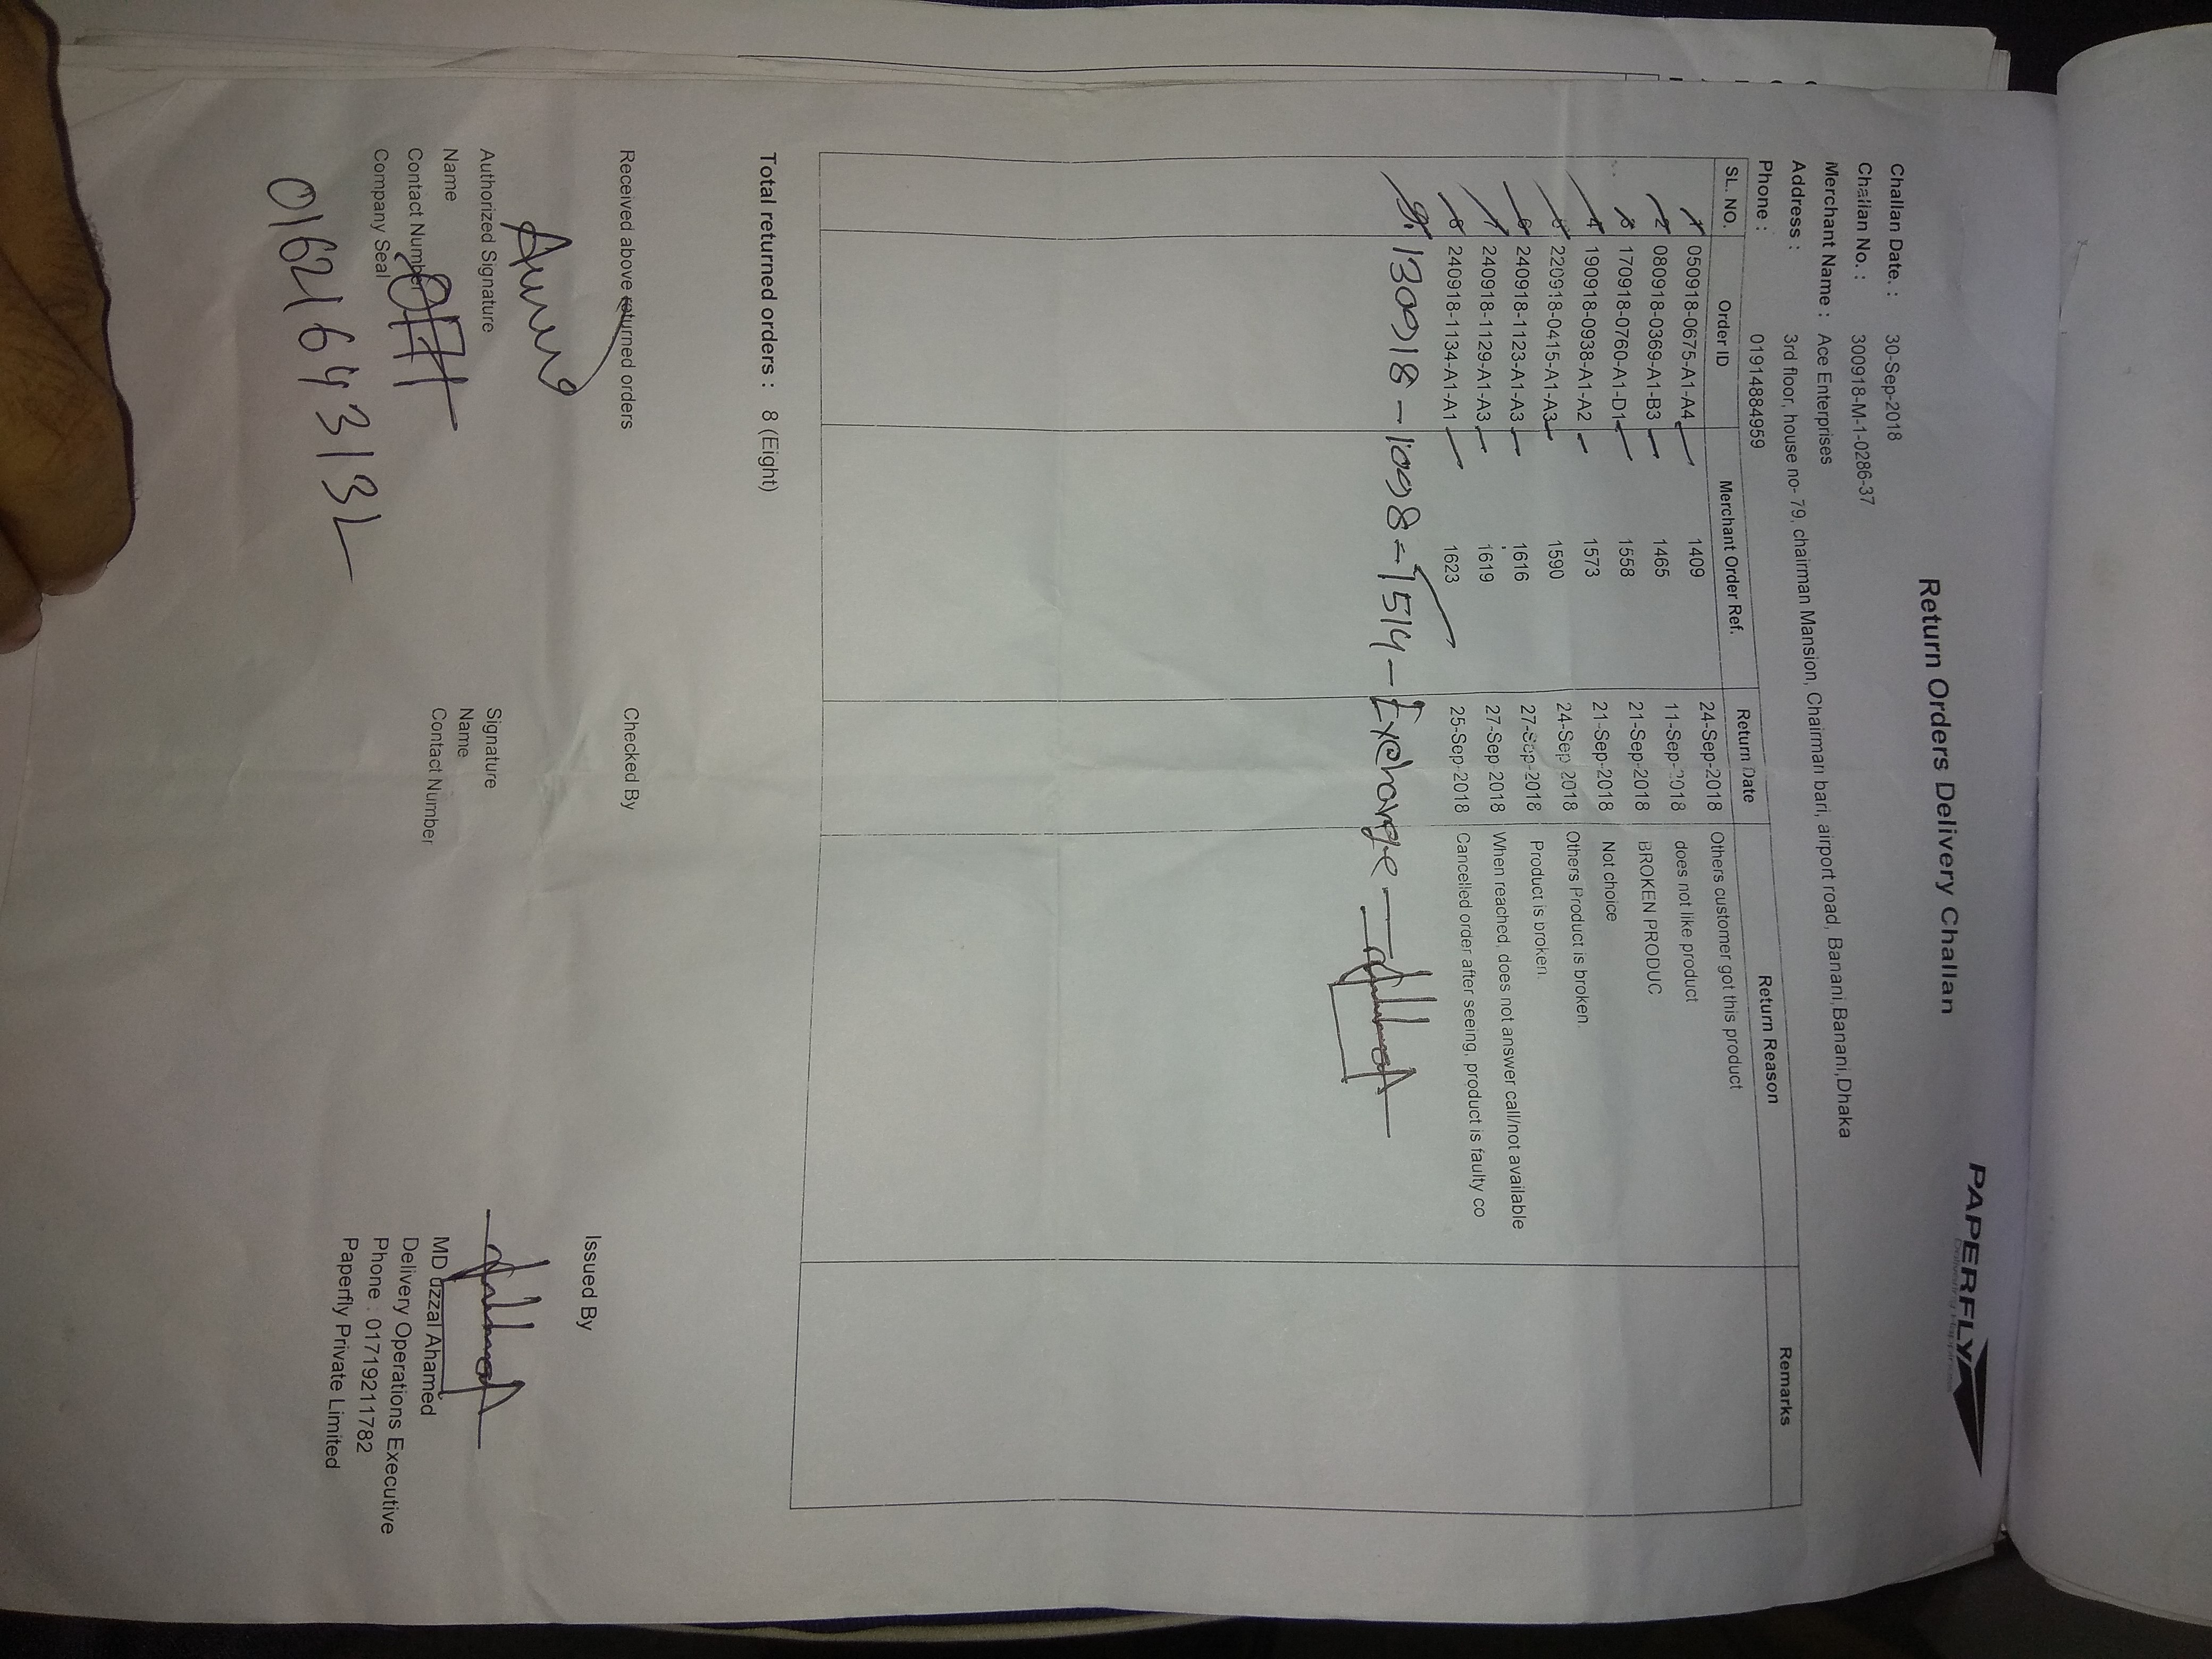 PAPERFLY
Delivering Happiness
Return Orders Delivery Challan
Challan Date. : 30-Sep-2018
Challan No. : 300918-M-1-0286-37
Merchant Name : Ace Enterprises
Address : 3rd floor, house no- 79, chairman Mansion, Chairman bari, airport road, Banani,Banani,Dhaka
Phone : 01914884959
SL. NO. Order ID Merchant Order Ref. Return Date Return Reason Remarks
1 050918-0675-A1-A4 1409 24-Sep-2018 Others customer got this product
2 080918-0369-A1-B3 1465 11-Sep-2018 does not like product
3 170918-0760-A1-D1 1558 21-Sep-2018 BROKEN PRODUC
4 190918-0938-A1-A2 1573 21-Sep-2018 Not choice
5 220918-0415-A1-A3 1590 24-Sep 2018 Others Product is broken.
6 240918-1123-A1-A3 1616 27-Sep-2018 Product is broken.
7 240918-1129-A1-A3 1619 27-Sep 2018 When reached, does not answer call/not available
8 240918-1134-A1-A1 1623 25-Sep-2018 Cancelled order after seeing, product is faulty co
9. 130918 - 1098 = 1514 - Exchange
Total returned orders : 8 (Eight)
Received above returned orders Checked By Issued By
Authorized Signature Signature
Name Name MD uzzal Ahamed
Contact Number Contact Number Delivery Operations Executive
Company Seal Phone : 01719211782
Paperfly Private Limited